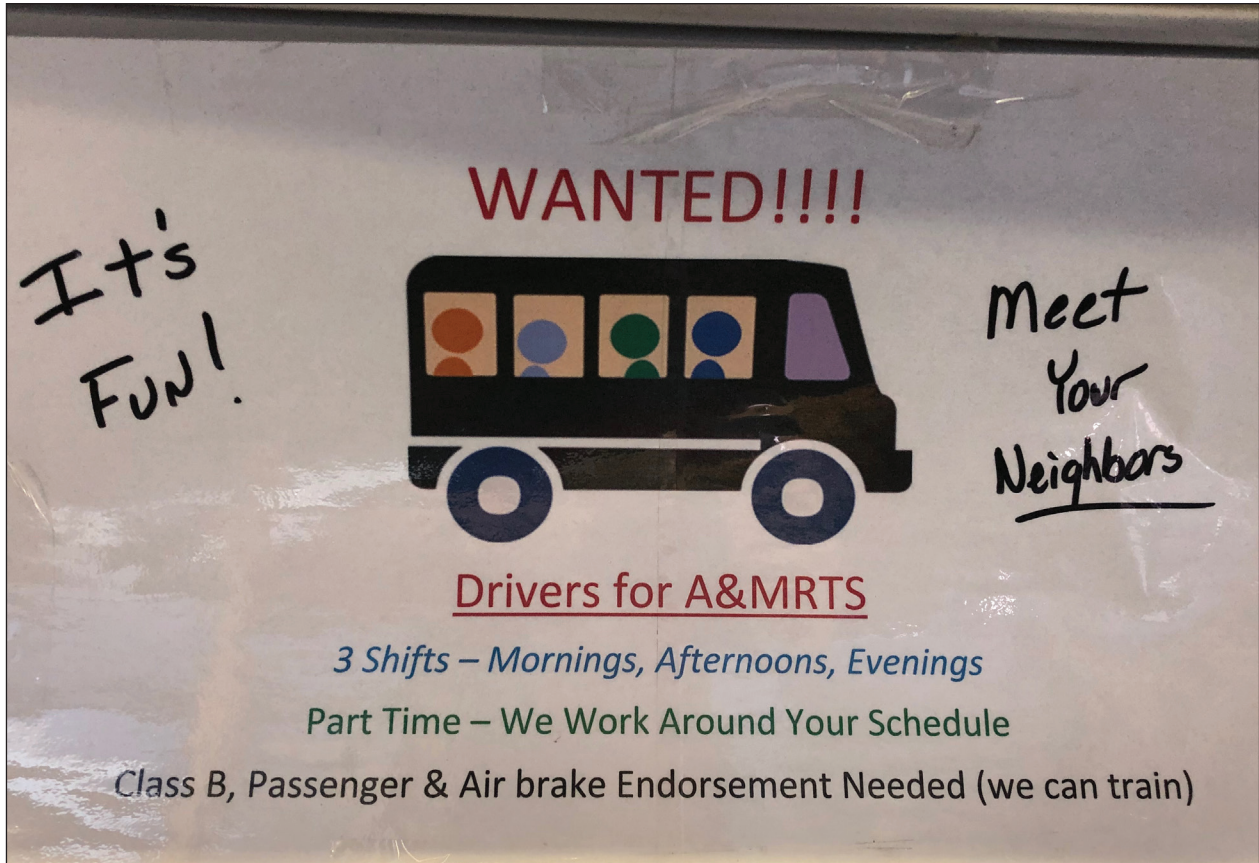 WANTED!!!!
It's
FUN!
Meet
Your
Neighbors
Drivers for A&MRTS
3 Shifts – Mornings, Afternoons, Evenings
Part Time – We Work Around Your Schedule
Class B, Passenger & Air brake Endorsement Needed (we can train)